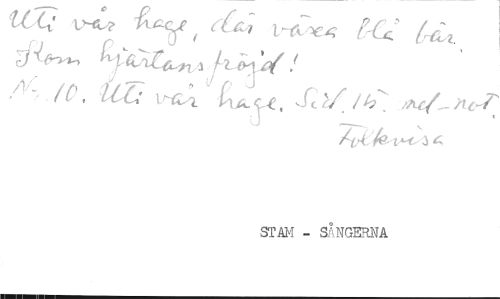 Uti vår hage, där växa blå bär.
Kom hjärtans fröjd!
Nr. 10. Uti vår hage. Sid. 15. med-not.
Folkvisa
STAM - SÅNGERNA